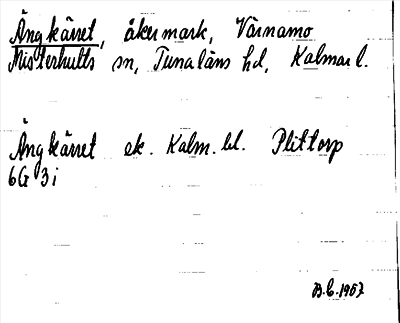 Ängkärret, åkermark, Värnamo
Misterhults sn, Tunaläns hd, Kalmar l.
Ängkärret ek. Kalm. bl. Plittorp
6G 3i
B.C. 1967